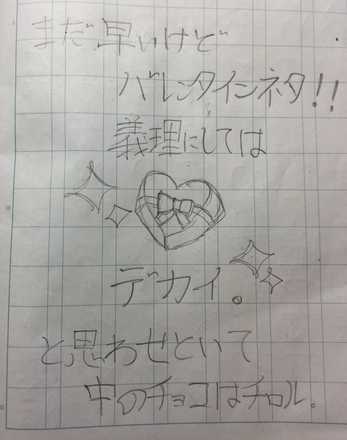 まだ早いけど
バレンタインネタ!!
義理にしては
デカイ。
と思わせといて
中のチョコはチロル。